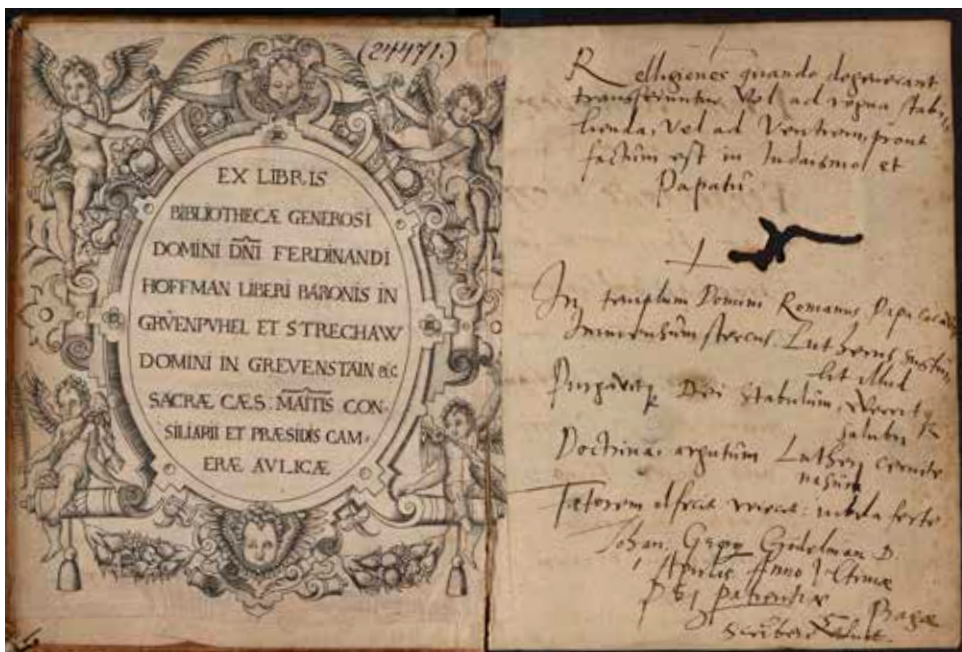 (24471.)
EX LIBRIS
BIBLIOTHECÆ GENEROSI
DOMINI DNI FERDINANDI
HOFFMAN LIBERI BARONIS IN
GRVENPVHEL ET STRECHAW
DOMINI IN GREVENSTAIN &c.
SACRÆ CÆS: MAITIS CON-
SILIARII ET PRÆSIDIS CAM-
ERÆ AVLICÆ
Relligiones quando degenerant
transferuntur vel ad regna stabi-
lienda, vel ad Ventrem, prout
factum est in Judaismo et
Papatu.
In templum Domini Romanus Papa
Immensum stercus Lutherus
illud
Dei stabulum,
Doctrina argutum Lutheri cernite
nasum
forte
Johan. Georg Godelman D.
Anno Ultimæ
patientiæ Pragæ
scribere